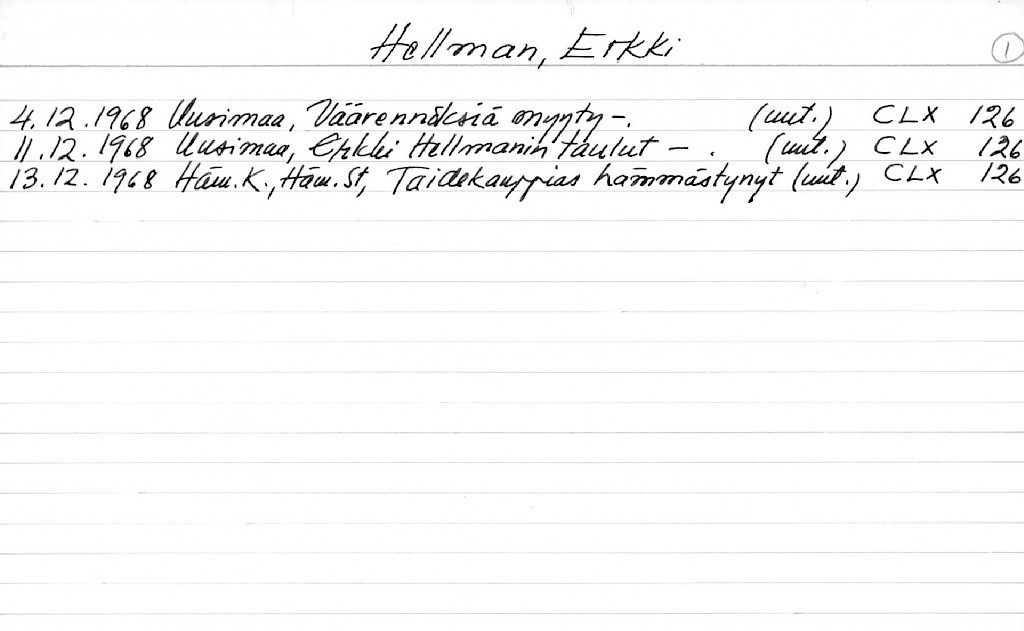 Hellman, Erkki 1
4.12.1968 Uusimaa, Väärennöksiä myyty -. (uut.) CLX 126
11.12.1968 Uusimaa, Erkki Hellmanin taulut - . (uut.) CLX 126
13.12.1968 Häm.K., Häm.St, Taidekauppias hämmästynyt (uut.) CLX 126